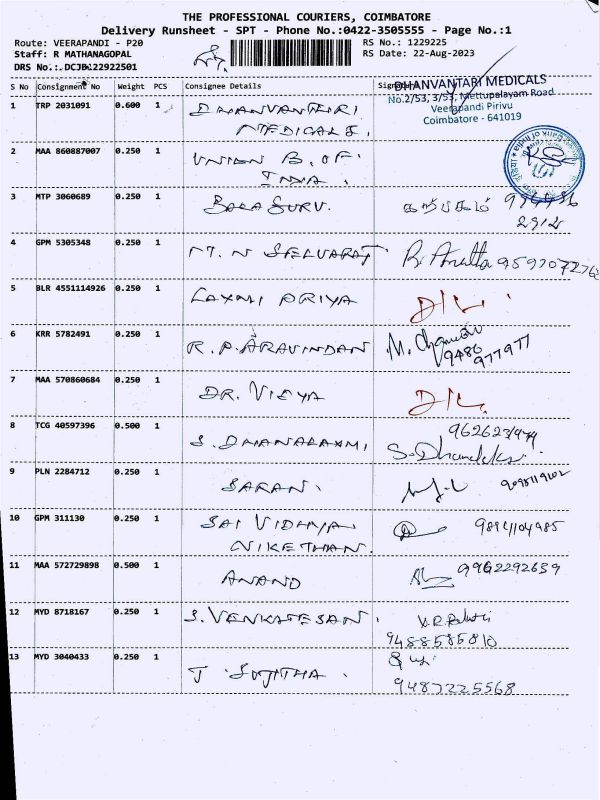 THE PROFESSIONAL COURIERS, COIMBATORE
Delivery Runsheet - SPT - Phone No.:0422-3505555 - Page No.:1
Route: VEERAPANDI - P20
Staff: R MATHANAGOPAL
DRS No.:.DCJBA22922501
RS No.: 1229225
RS Date: 22-Aug-2023
S No Consignment No Weight PCS Consignee Details Signature
DHANVANTARI MEDICALS
No.2/53, 3/53, Mettupalayam Road
Veerapandi Pirivu
Coimbatore - 641019
1 TRP 2031091 0.600 1 DHANVANTHIRI
MEDICALS.
2 MAA 860887007 0.250 1 UNION B. OF
INDIA.
3 MTP 3060689 0.250 1 BALA GURU.
4 GPM 5305348 0.250 1 MT. N SELVARAJ
5 BLR 4551114926 0.250 1 LAXMI PRIYA
6 KRR 5782491 0.250 1 R. P. ARAVINDAN
9486
977977
7 MAA 570860684 0.250 1 DR. VIDYA
8 TCG 40597396 0.500 1 S. DHANALAXMI
9 PLN 2284712 0.250 1 SARAN.
10 GPM 311130 0.250 1 SAI VIDHYA
NIKETHAN.
11 MAA 572729898 0.500 1 ANAND 9962292659
12 MYD 8718167 0.250 1 S. VENKATESAN.
9488585810
13 MYD 3040433 0.250 1 T. SUJITHA.
9487225568